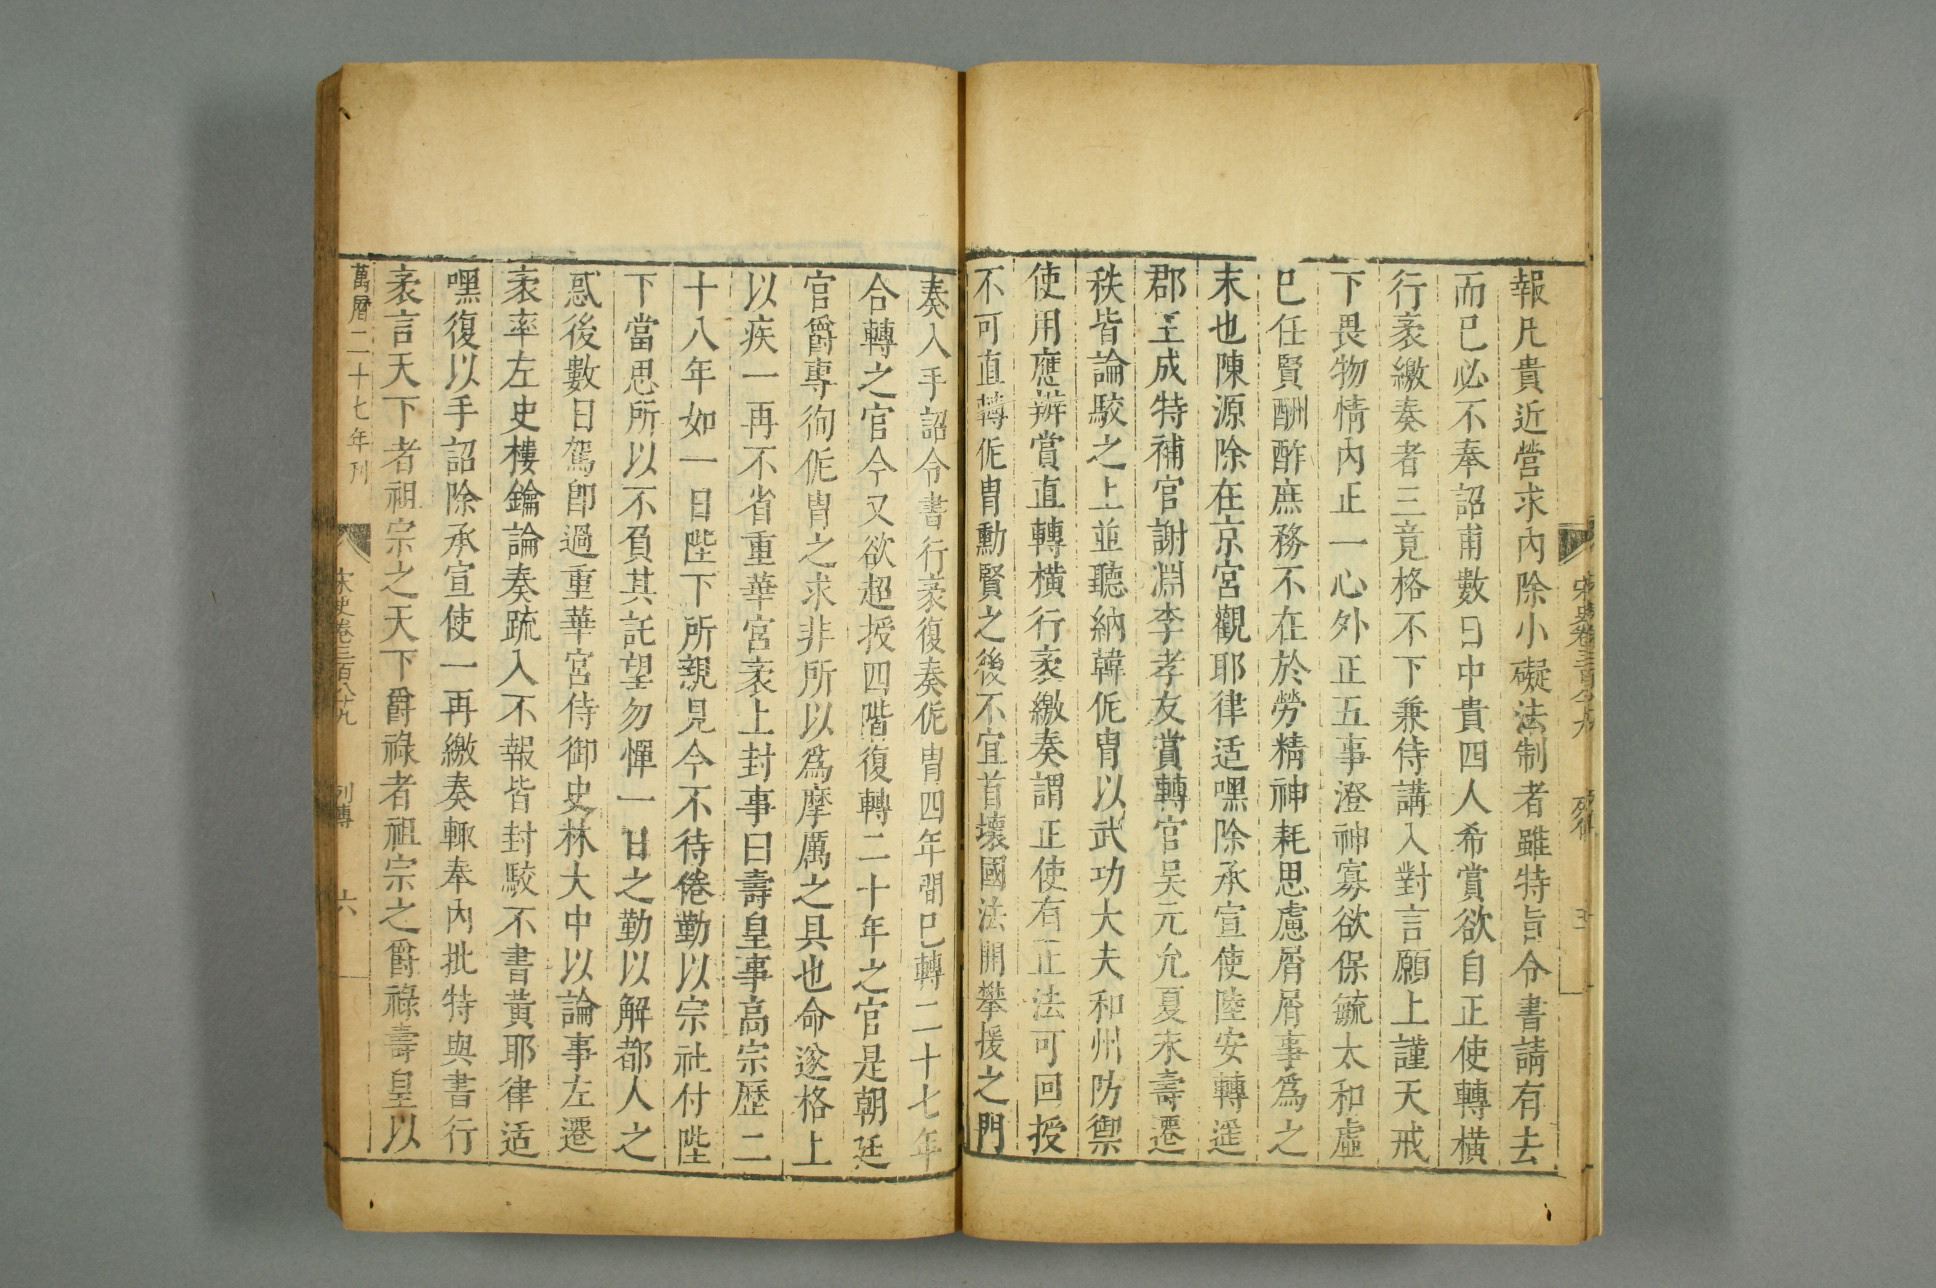 報凡貴近營求內除小礙法制者雖特旨令書請有去
而已必不奉詔甫數日中貴四人希賞欲自正使轉橫
行袤繳奏者三竟格不下兼侍講入對言願上謹天戒
下畏物情內正一心外正五事澄神寡欲保毓太和虛
已任賢酬酢庶務不在於勞精神耗思慮屑屑事爲之
末也陳源除在京宮觀耶律适嘿除承宣使陸安轉遥
郡王成特補官謝淵李孝友賞轉官吳元允夏永壽遷
秩皆論駮之上並聽納韓侂胄以武功大夫和州防禦
使用應辦賞直轉橫行袤繳奏謂正使有正法可回授
不可直轉侂胄勳賢之後不宜首壞國法開攀援之門
奏入手詔令書行袤復奏侂胄四年間已轉二十七年
合轉之官今又欲超授四階復轉二十年之官是朝廷
官爵專徇侂胄之求非所以爲摩厲之具也命遂格上
以疾一再不省重華宮袤上封事曰壽皇事高宗歷二
十八年如一日陛下所親見今不待倦勤以宗社付陛
下當思所以不負其託望勿憚一日之勤以解都人之
惑後數日駕卽過重華宮侍御史林大中以論事左遷
袤率左史樓鑰論奏疏入不報皆封駮不書黃耶律适
嘿復以手詔除承宣使一再繳奏輒奉內批特與書行
袤言天下者祖宗之天下爵祿者祖宗之爵祿壽皇以
萬曆二十七年刊
宋史卷三百八十九
列傳
六